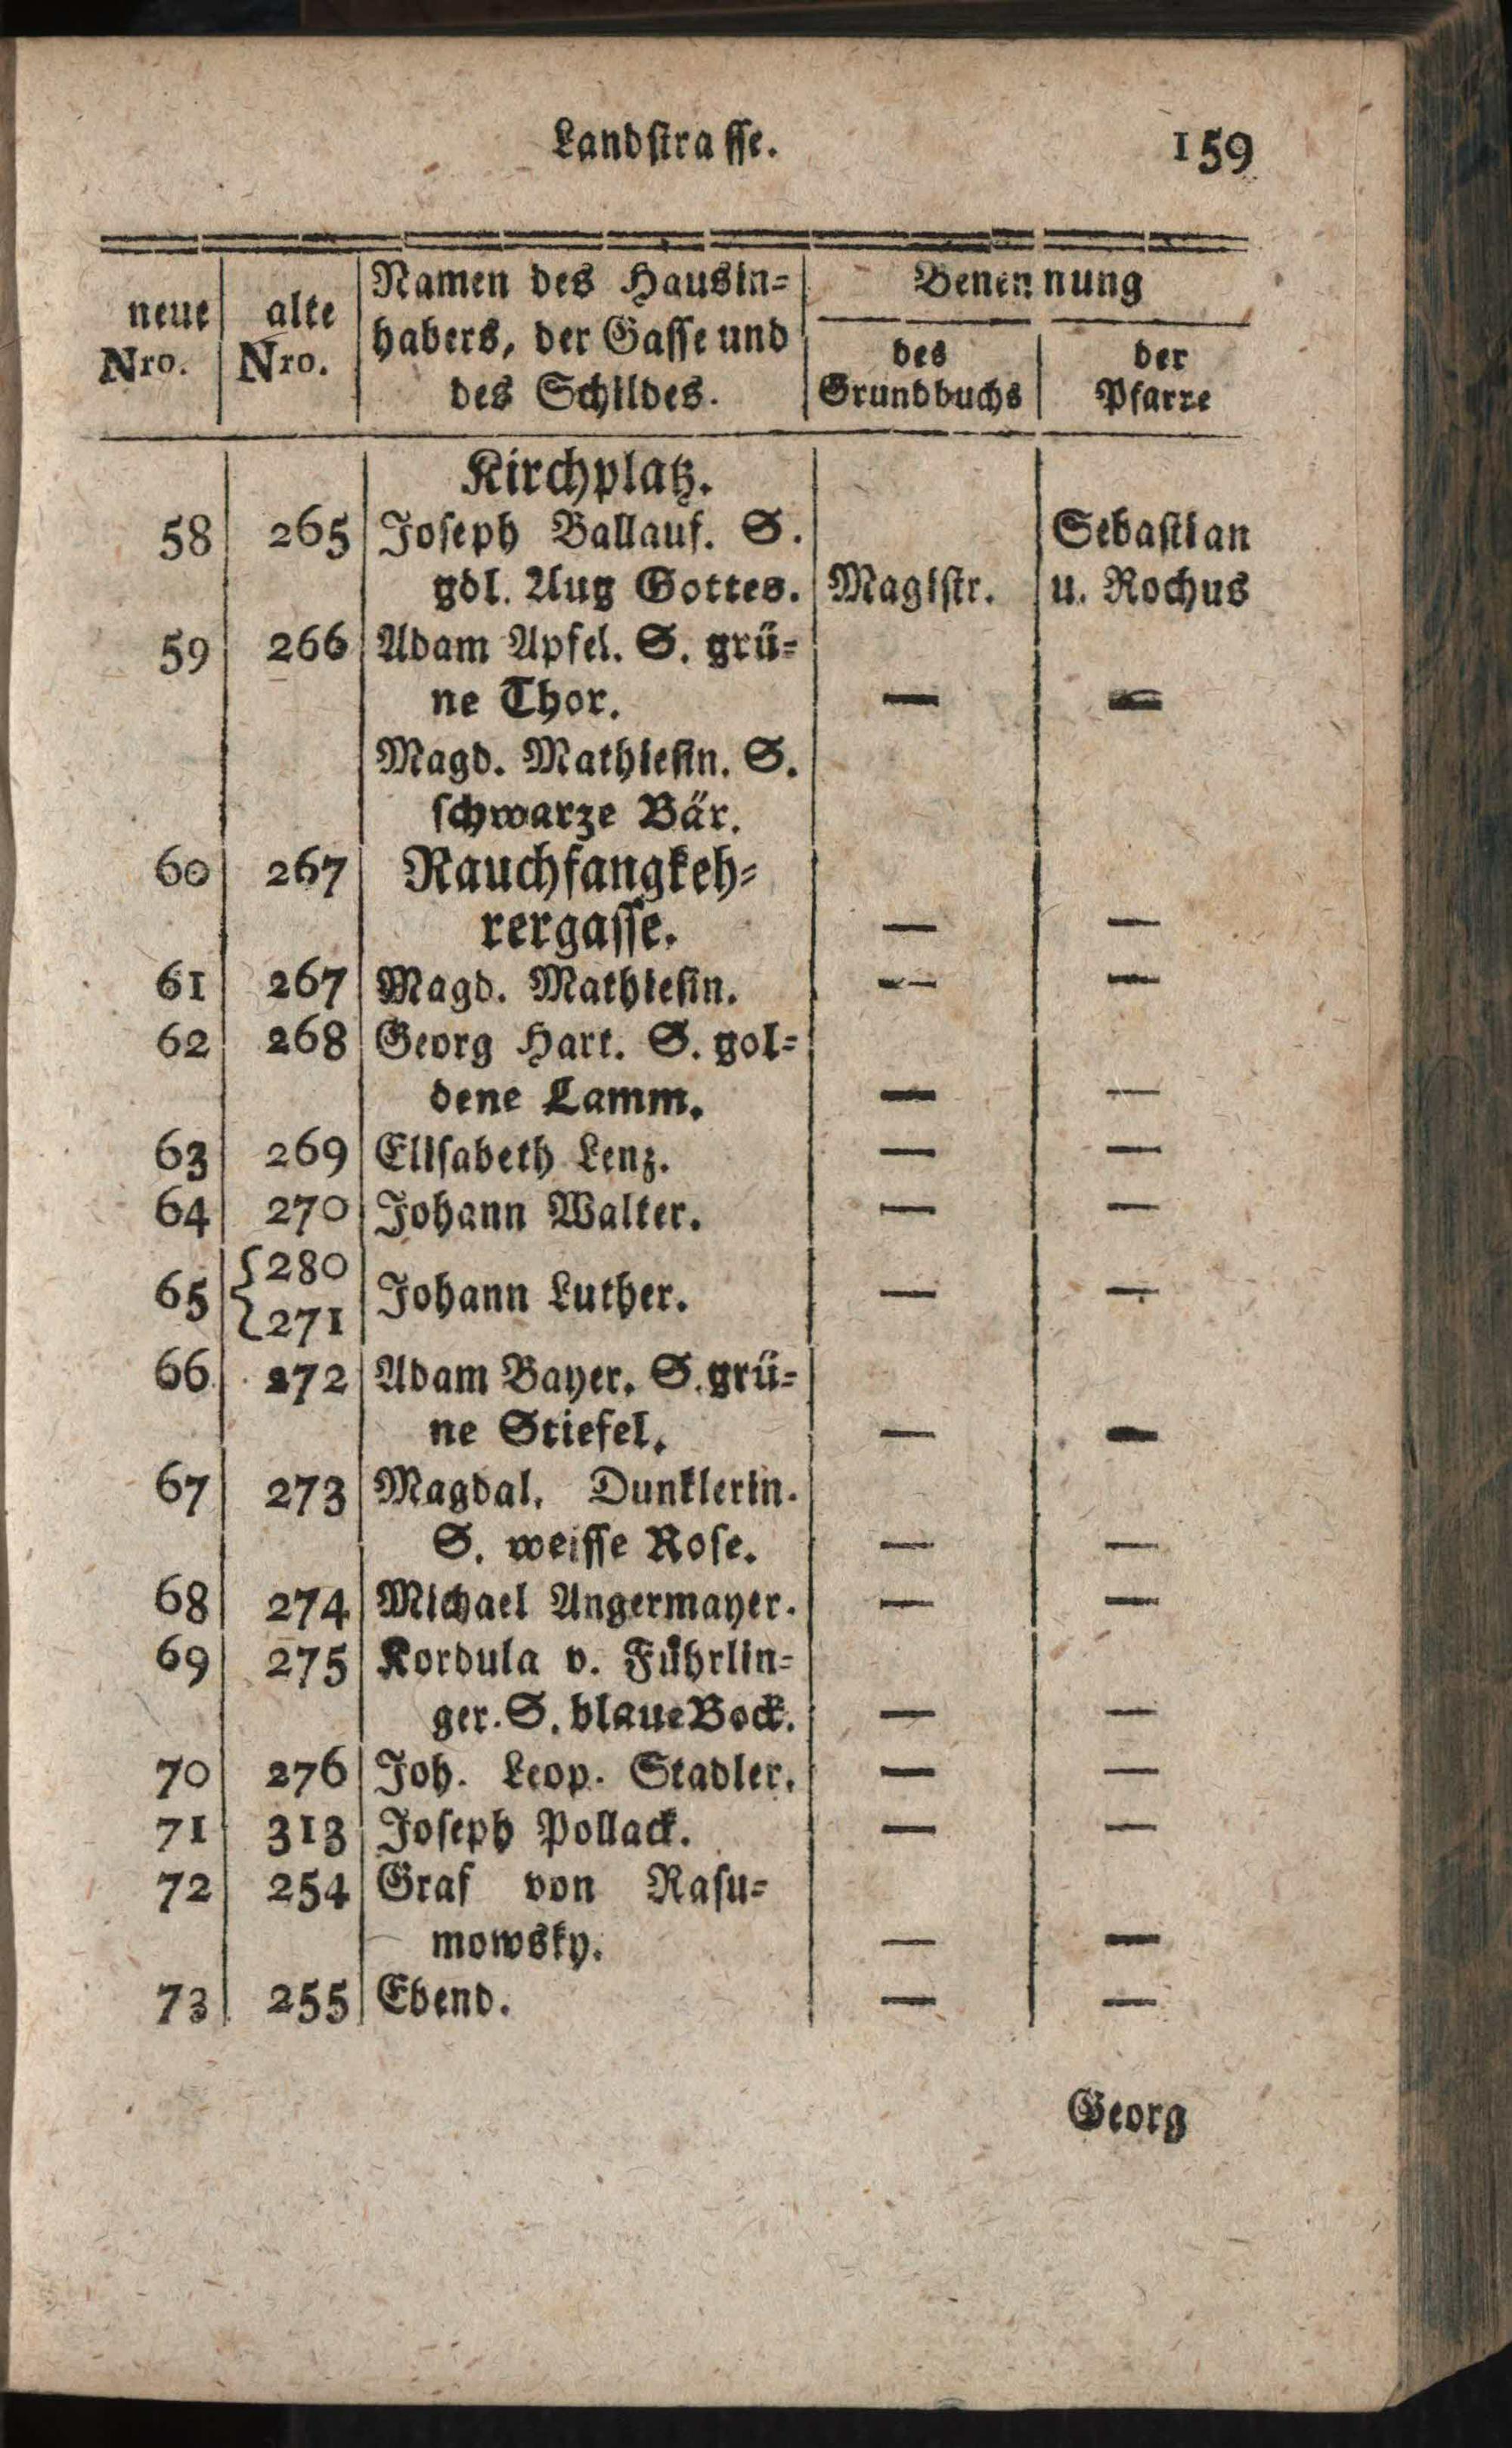 Landstrasse. 159
neue Nro. alte Nro. Namen des Hausin= Benennung
habers, der Gasse und des Grundbuchs der Pfarre
des Schildes.
Kirchplatz.
58 265 Joseph Ballauf. S. Sebastian
gdl. Aug Gottes. Magistr. u. Rochus
59 266 Adam Apfel. S. grü=
ne Thor. — —
Magd. Mathiesin. S.
schwarze Bär.
60 267 Rauchfangkeh=
rergasse. — —
61 267 Magd. Mathiesin. — —
62 268 Georg Hart. S. gol=
dene Lamm. — —
63 269 Elisabeth Lenz. — —
64 270 Johann Walter. — —
65 {280 271 Johann Luther. — —
66 272 Adam Bayer. S. grü=
ne Stiefel. — —
67 273 Magdal. Dunklerin.
S. weisse Rose. — —
68 274 Michael Angermayer. — —
69 275 Kordula v. Führlin=
ger. S. blaue Bock. — —
70 276 Joh. Leop. Stadler. — —
71 313 Joseph Pollack. — —
72 254 Graf von Rasu=
mowsky. — —
73 255 Ebend. — —
Georg